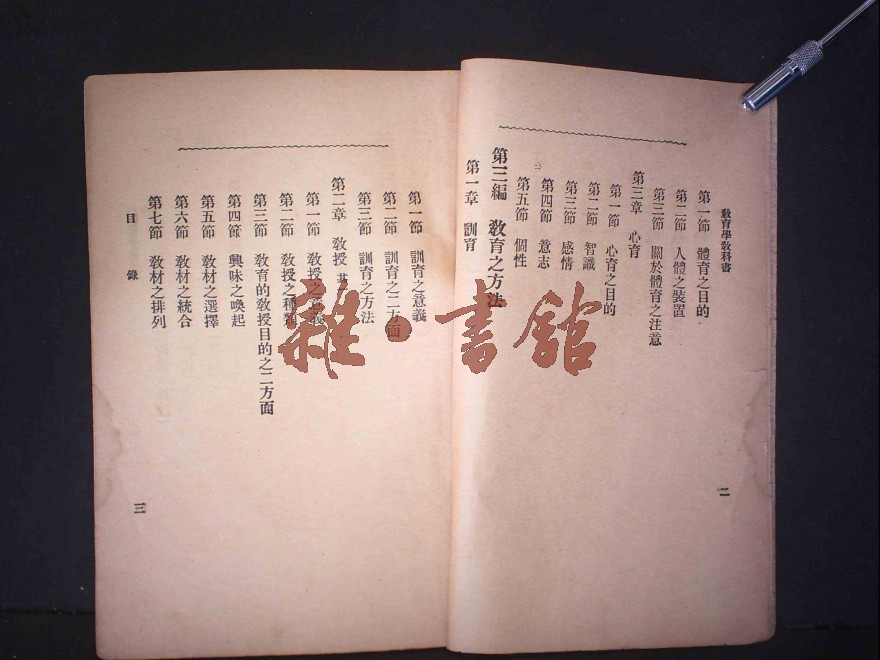 教育學教科書
第一節 體育之目的
第二節 人體之裝置
第三節 關於體育之注意
第三章 心育
第一節 心育之目的
第二節 智識
第三節 感情
第四節 意志
第五節 個性
第三編 教育之方法
第一章 訓育
二
第一節 訓育之意義
第二節 訓育之二方面
第三節 訓育之方法
第二章 教授
第一節 教授之意義
第二節 教授之種類
第三節 教育的教授目的之二方面
第四節 興味之喚起
第五節 教材之選擇
第六節 教材之統合
第七節 教材之排列
目錄
三
雜·書館